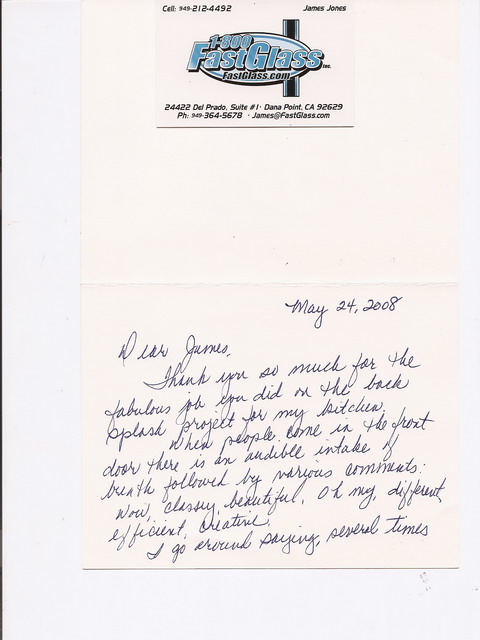 Cell: 949-212-4492 James Jones
1-800
FastGlass Inc.
FastGlass.com
24422 Del Prado, Suite #1 · Dana Point, CA 92629
Ph: 949-364-5678 · James@FastGlass.com
May 24, 2008
Dear James,
Thank you so much for the
fabulous job you did on the back
splash project for my kitchen.
When people come in the front
door there is an audible intake of
breath followed by various comments:
wow, classy, beautiful, oh my, different,
efficient, creative.
I go around saying, several times